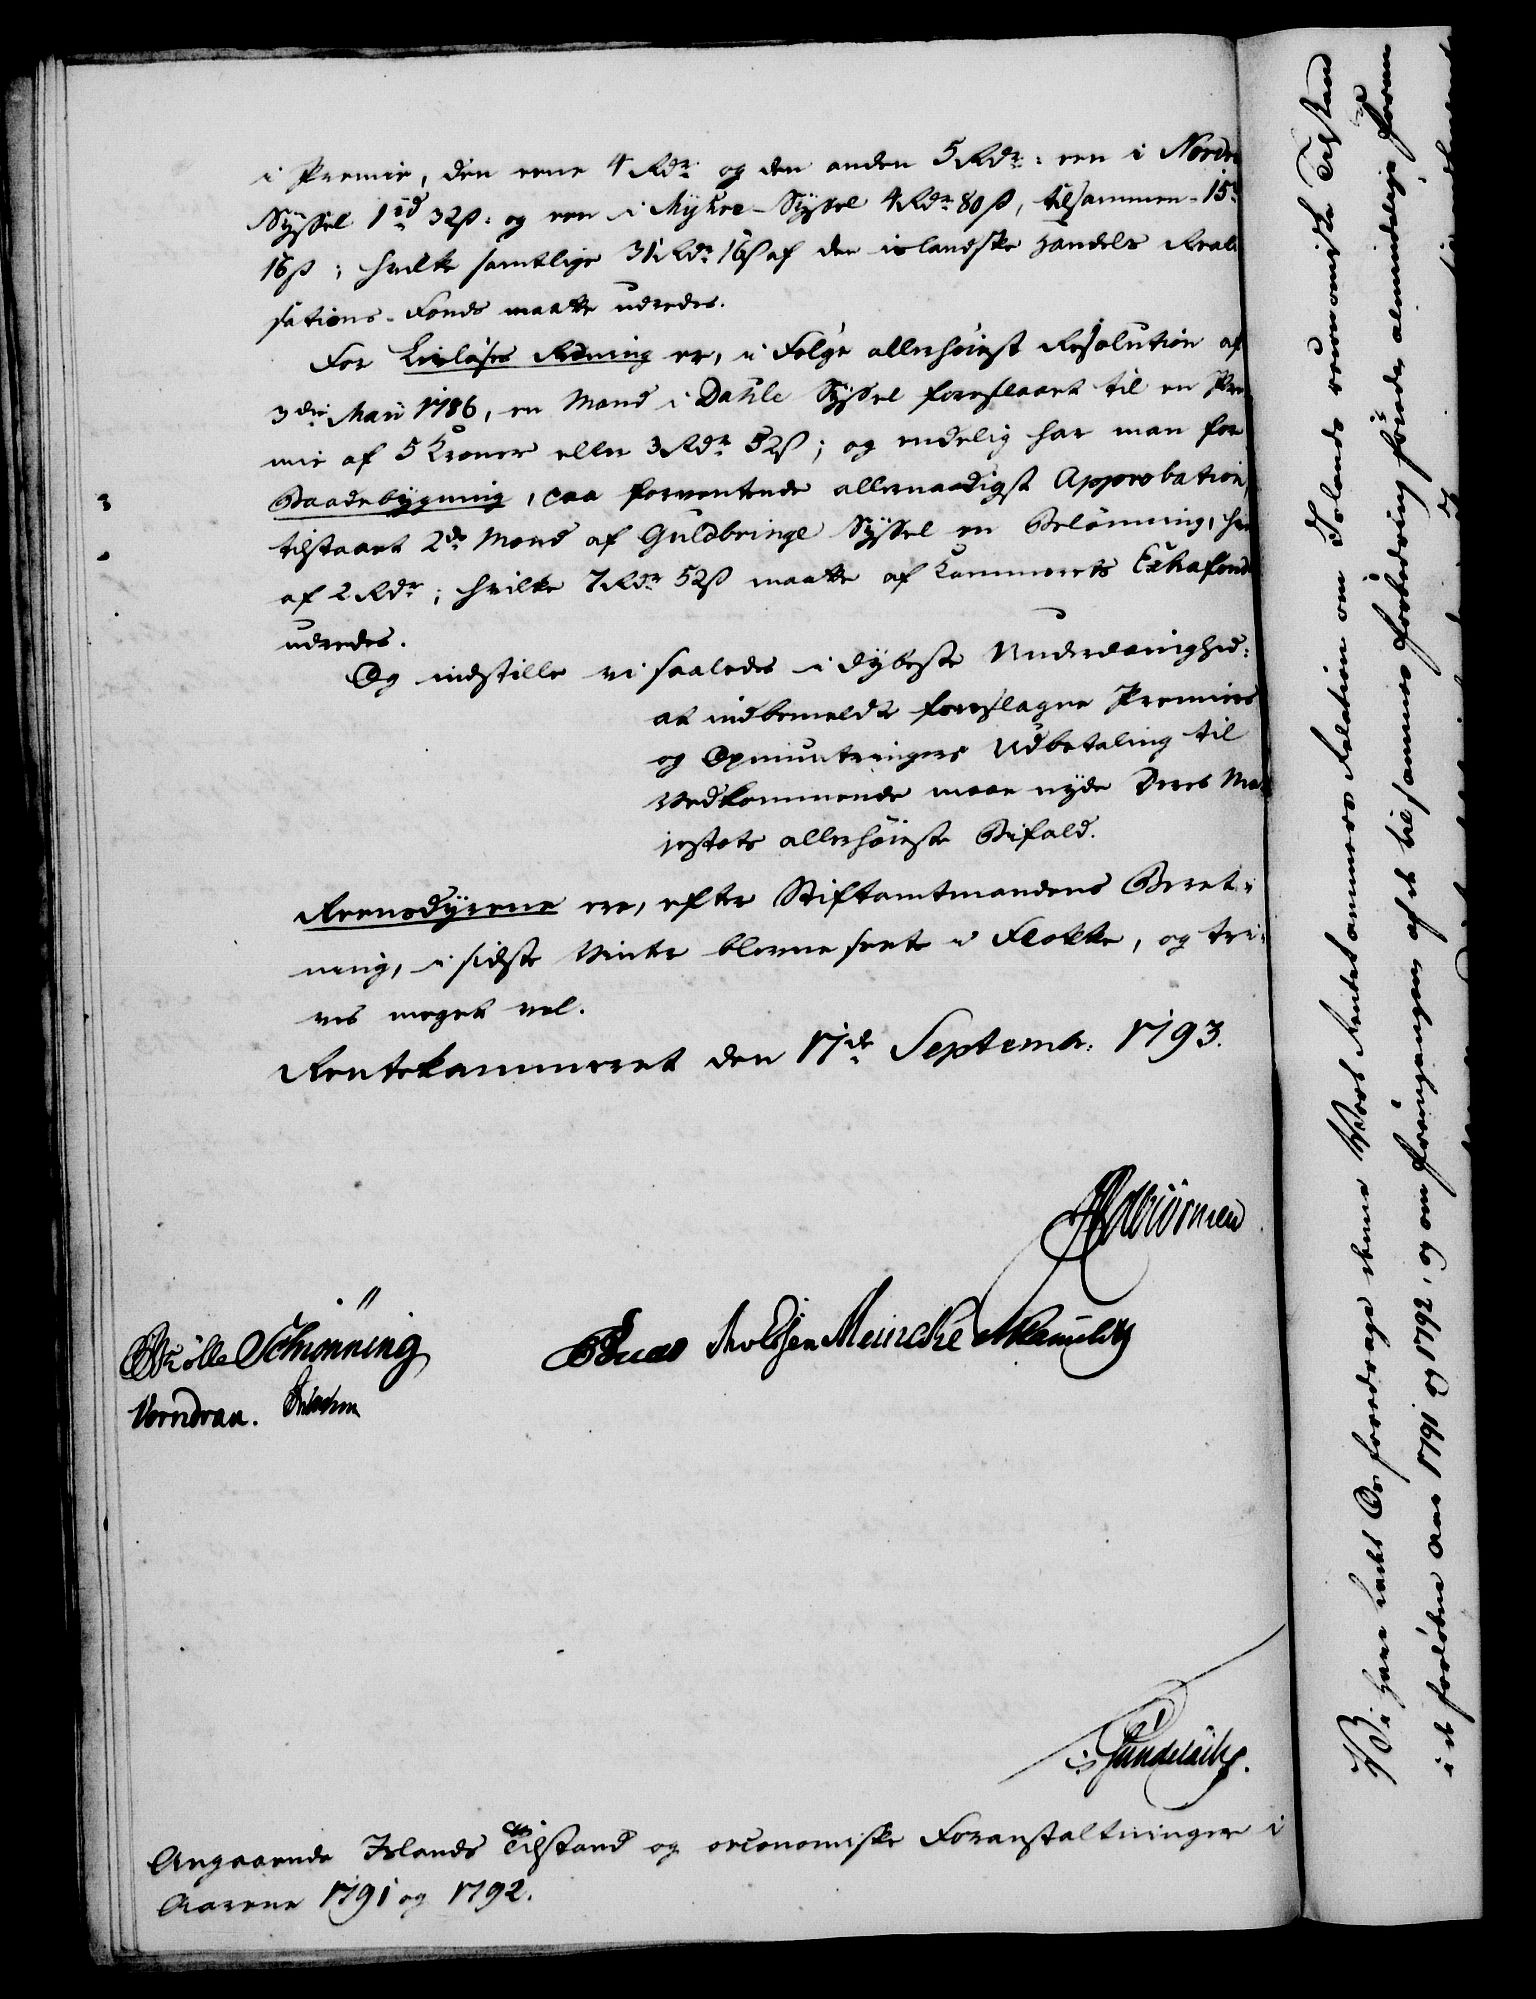 i Premie, den eene 4 Rdr og den anden 5 Rdr: een i Norder
Syssel 1 rd 32 ß: og een i Myhre-Syssel 4 Rdr 80 ß, tilsammen - 15 r
16 ß; hvilke samtlige 31 Rdr 16 ß af den islandske Handels Reali
sations-Fonds maatte udredes.
For Livløses Redning er, i Følge allerhøiest Resolution af
3die Maii 1786, en Mand i Dahle Syssel foreslaaet til en Pre
mie af 5 Kroner eller 3 Rdr 52 ß; og endelig har man for
Baadebygning, paa forventende allernaadigst Approbation,
tilstaaet 2de Mænd af Guldbringe Syssel en Belønning, hver
af 2 Rdr; hvilke 7 Rdr 52 ß maatte af Kammerets Extrafond
udredes.
Og indstille vi saaledes i dybeste Underdanighed:
at indbemeldte foreslagne Premiers
og Opmuntringers Udbetaling til
Vedkommende maae nyde Deres Ma
jestæts allerhøieste Bifald.
Reensdyrene ere, efter Stiftamtmandens Beret-
ning, i sidste Vinter blevne seete i Flokke, og tri-
ves meget vel.
Rentekammeret den 17de Septembr: 1793.
Schiønning Meincke
Vorndran.
Angaaende Islands Tilstand og oeconomiske Foranstaltninger i
Aarene 1791 og 1792.
Vi have ladet Os foredrage denne Vores Rentekammers Relation om Islands oeconomiske Tilstand
i de forløbne Aar 1791 og 1792, og om fremgangen af de til sammes Forbedring føiede almindelige Foran